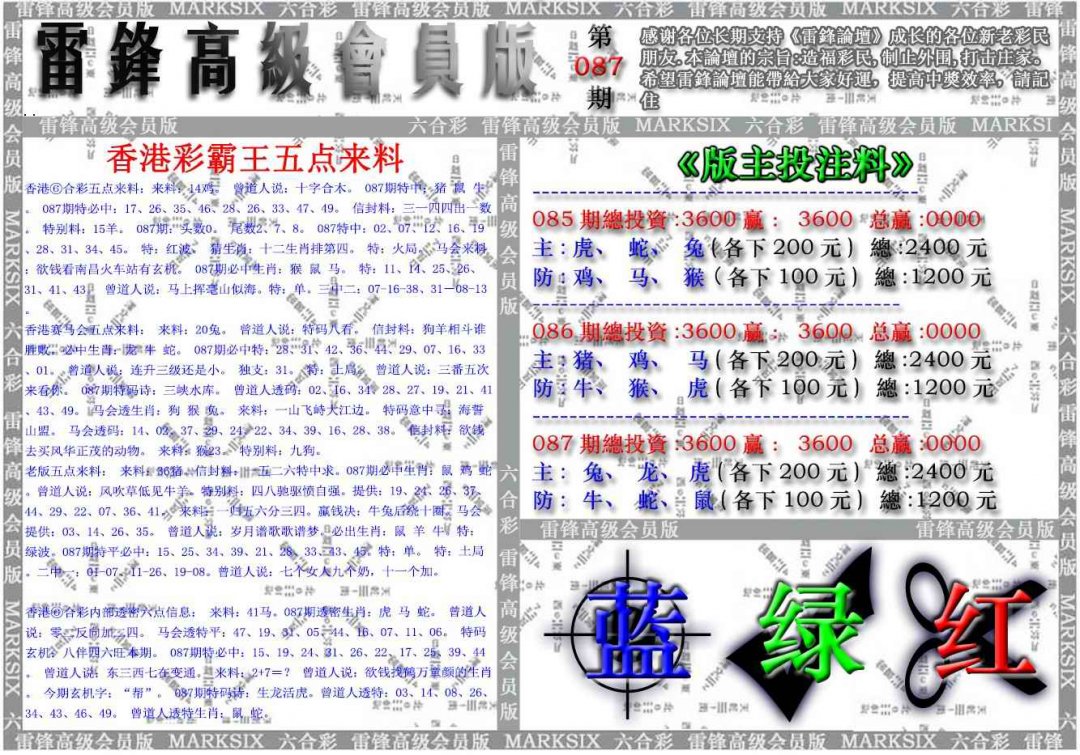 雷锋高级会员版 MARKSIX 六合彩 雷锋高级会员版 MARKSIX 六合彩 雷锋高级会员版 MARKSIX 六合彩 雷锋
雷鋒高級會員版
第
087
期
感谢各位长期支持《雷鋒論壇》成长的各位新老彩民
朋友.本論壇的宗旨:造福彩民,制止外围,打击庄家.
希望雷鋒論壇能帶給大家好運，提高中獎效率，請記
住
雷锋高级会员版
六合彩 雷锋高级会员版 MARKSIX 六合彩 雷锋高级会员版 MARKSI
香港彩霸王五点来料
香港⑥合彩五点来料: 来料: 14鸡。 曾道人说: 十字合木。 087期特中: 猪 鼠 牛
。 087期特必中: 17、26、35、46、28、26、33、47、49。 信封料: 三一四四出一数
。 特别料: 15羊。 087期: 头数0。 尾数2、7、8。 087特中: 02、07、12、16、19
、28、31、34、45。 特: 红波。 猜生肖: 十二生肖排第四。 特: 火局。 马会来料
: 欲钱看南昌火车站有玄机。 087期必中生肖: 猴 鼠 马。 特: 11、14、25、26、
31、41、43。 曾道人说: 马上挥毫山似海。特: 单。三中二: 07-16-38、31-08-13
。
香港赛马会五点来料: 来料: 20兔。 曾道人说: 特码八看。 信封料: 狗羊相斗谁
胜败。必中生肖: 龙 牛 蛇。 087期必中特: 28、31、42、36、44、29、07、16、33
、01。 曾道人说: 连升三级还是小。 独支: 31。 特: 土局。 曾道人说: 三番五次
来看你。 087期特码诗: 三峡水库。 曾道人透码: 02、16、34、28、27、19、21、41
、43、49。 马会透生肖: 狗 猴 兔。 来料: 一山飞峙大江边。 特码意中寻: 海誓
山盟。 马会透码: 14、02、37、29、24、22、34、39、16、28、38。 信封料: 欲钱
去买风华正茂的动物。 来料: 猴23。 特别料: 九狗。
老版五点来料: 来料: 36猪。信封料: 一五二六特中求。087期必中生肖: 鼠 鸡 蛇
。曾道人说: 风吹草低见牛羊。特别料: 四八驰驱愤自强。提供: 19、24、26、37、
44、29、22、07、36、41。 来料: 一归五六分三四。赢钱决: 牛兔后绕十圈。马会
提供: 03、14、26、35。 曾道人说: 岁月谱歌歌谱梦。必出生肖: 鼠 羊 牛。特:
绿波。087期特平必中: 15、25、34、39、21、28、33、43、45。特: 单。 特: 土局
。二中一: 01-07、11-26、19-08。曾道人说: 七个女人九个奶，十一个加。
香港⑥合彩内部透密六点信息: 来料: 41马。087期透密生肖: 虎 马 蛇。 曾道人
说: 零二反向加三四。 马会透特平: 47、19、31、05、44、16、07、11、06。 特码
玄机: 八伴四六旺本期。 087期特必中: 15、19、24、31、26、22、17、25、39、44
。 曾道人说: 东三西七在变通。 来料: 2+7=？ 曾道人说: 欲钱找鹤万童颜的生肖
。 今期玄机字: “帮”。 087期特码诗: 生龙活虎。曾道人透特: 03、14、08、26、
34、43、46、49。 曾道人透特生肖: 鼠 蛇。
《版主投注料》
085期總投資:3600 贏: 3600 总赢:0000
主:虎、 蛇、 兔(各下200元) 總:2400元
防:鸡、 马、 猴(各下100元) 總:1200元
086期總投資:3600 贏: 3600 总赢:0000
主:猪、 鸡、 马(各下200元) 總:2400元
防:牛、 猴、 虎(各下100元) 總:1200元
087期總投資:3600 贏: 3600 总赢:0000
主: 兔、 龙、 虎(各下200元) 總:2400元
防: 牛、 蛇、 鼠(各下100元) 總:1200元
雷锋高级会员版
雷锋高级会员版
蓝 绿 红
雷锋高级会员版 MARKSIX 六合彩 雷锋高级会员版 MARKSIX 六
雷锋高级会员版 六合彩 雷锋高级会员版
雷锋高级会员版 MARKSIX 六合彩 雷锋高级会员版 MARKSIX 六
雷锋高级会员版 MARKSIX 六合彩 雷锋高级会员版 MARKSIX 六合彩 雷锋高级会员版 MARKSIX 六合彩 雷锋